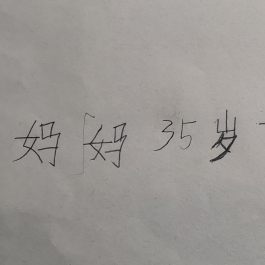 妈妈35岁